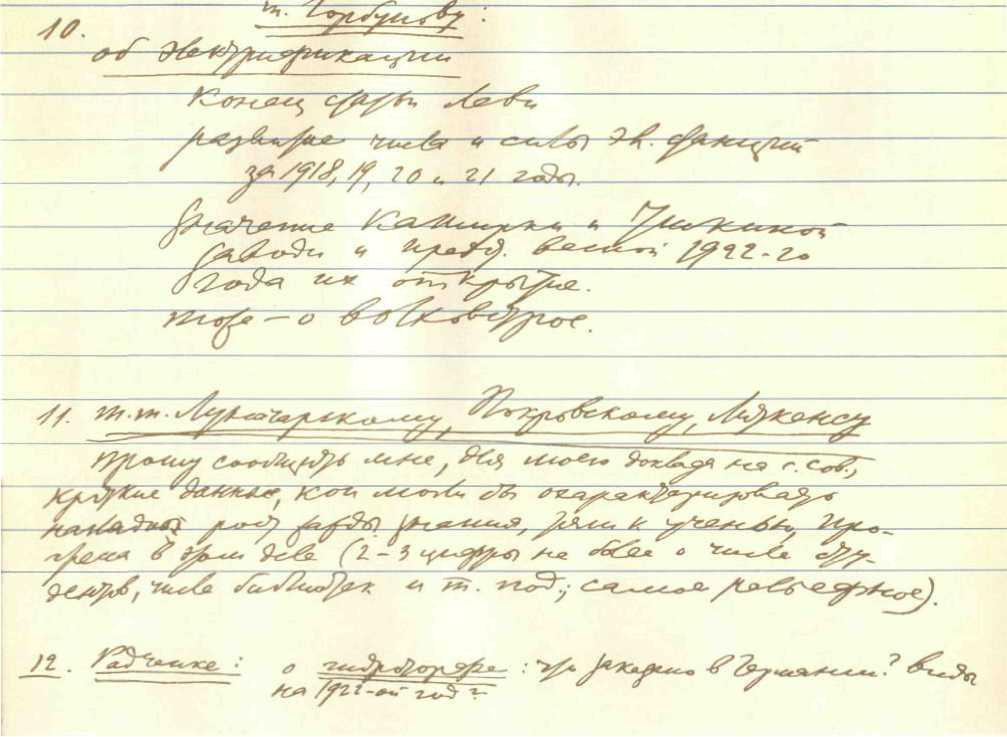 10. т. Горбунову:
об электрификации
Конец статьи Леви
развитие числа и силы эл. станций
за 1918, 19, 20 и 21 годы.
Значение Каширки и Уткиной
Заводи и предп. весной 1922-го
года их открытие.
тоже — о Волховстрое.
11. т.т. Луначарскому, Покровскому, Литкенсу
прошу сообщить мне, для моего доклада на с. сов.,
краткие данные, кои могли бы охарактеризовать
рост жажды знания, тяги к ученью, про-
гресса в этом деле (2-3 цифры не более о числе сту-
дентов, числе библиотек и т. под.; самое рельефное).
12. Радченке: о гидроторфе: что заказано в Германии? виды
на 1922-ой год?